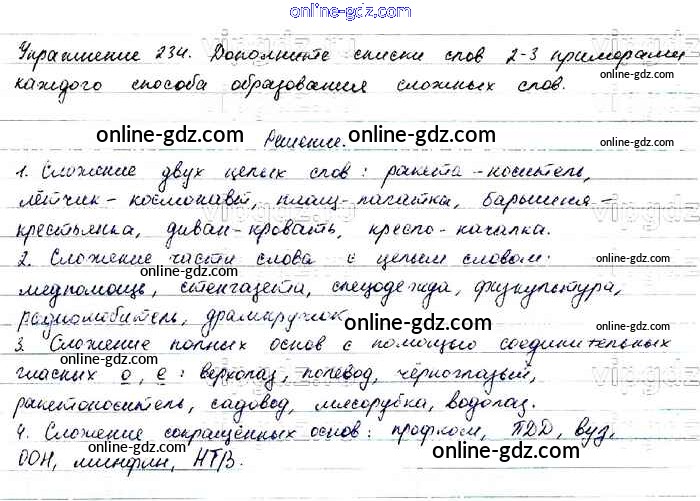 online-gdz.com
Упражнение 234. Дополните списки слов 2-3 примерами
каждого способа образования сложных слов.
online-gdz.com
online-gdz.com
online-gdz.com
Решение.
1. Сложение двух целых слов: ракета-носитель,
лётчик-космонавт, плащ-палатка, барышня-
крестьянка, диван-кровать, кресло-качалка.
2. Сложение части слова с целым словом:
online-gdz.com
online-gdz.com
медпомощь, стенгазета, спецодежда, физкультура,
радиолюбитель, драмкружок
online-gdz.com
3. Сложение полных основ с помощью соединительных
гласных о, е: верхолаз, полевод, черноглазый,
online-gdz.com
ракетоноситель, садовод, мясорубка, водолаз.
online-gdz.com
4. Сложение сокращённых основ: профком, ПДД, вуз,
ООН, минфин, НТВ.
online-gdz.com
online-gdz.com